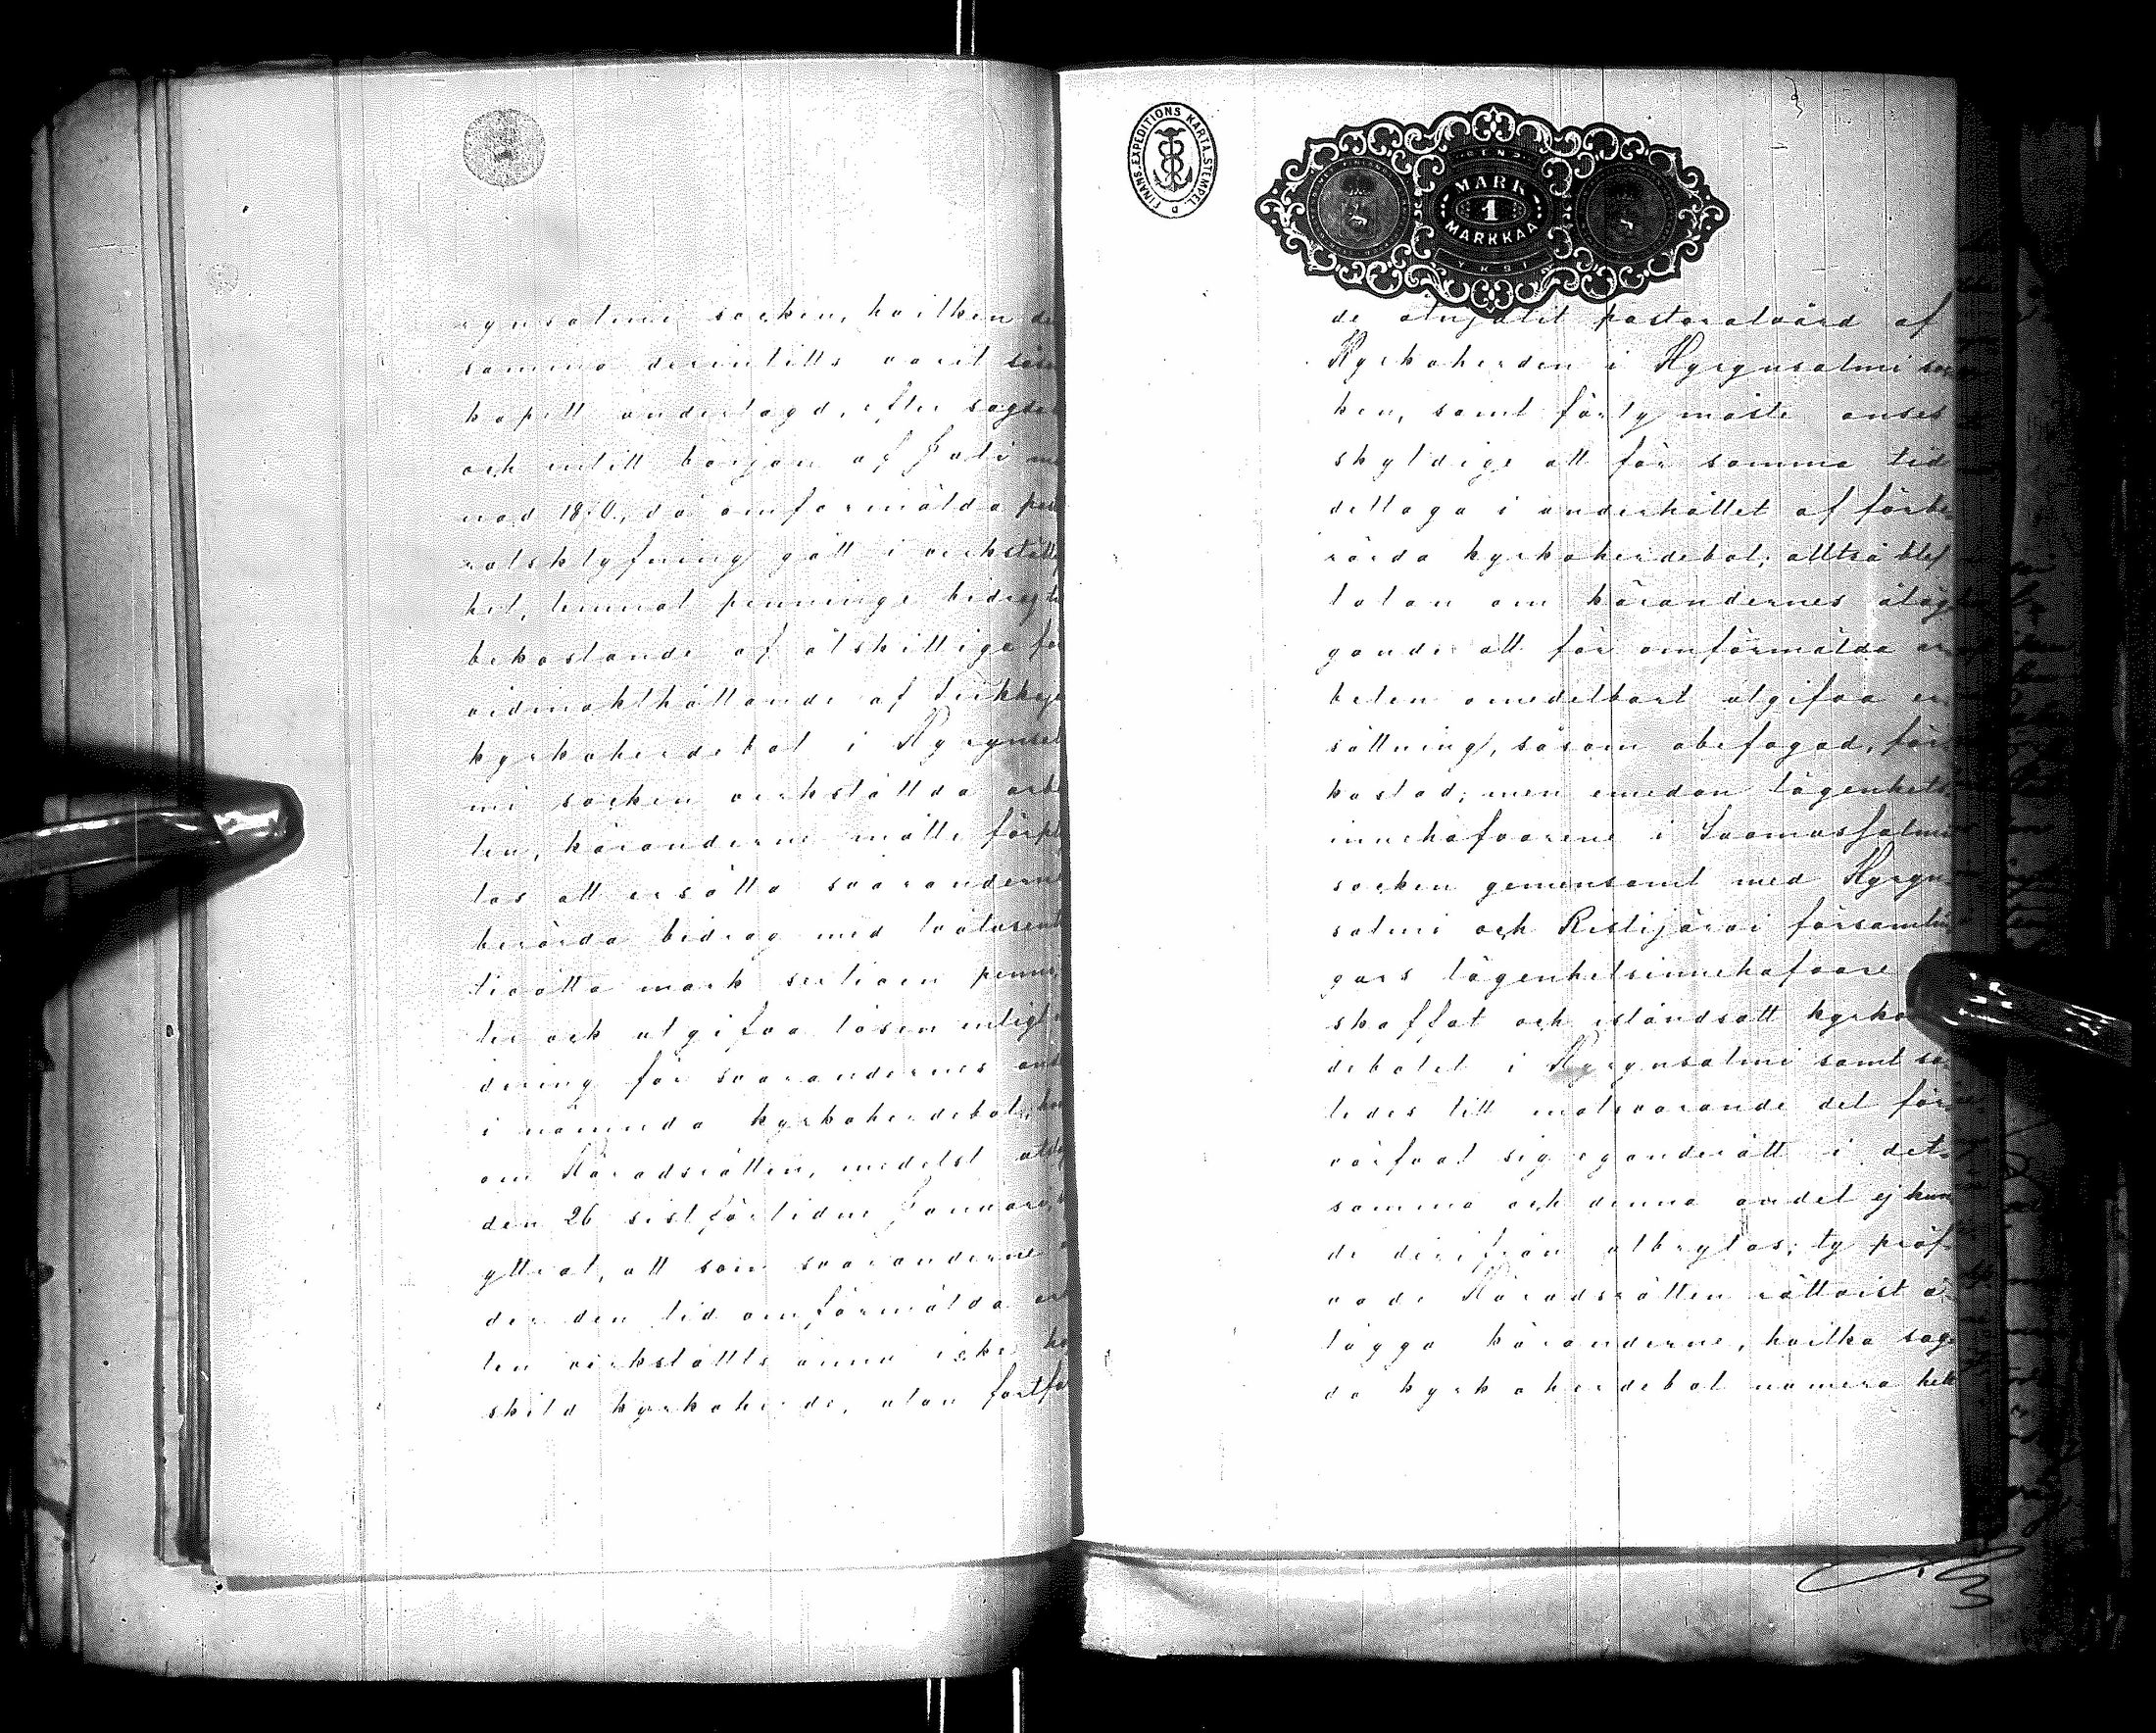 rgnsalmi socken, hvilken de
samma derintills varit såsom
kapell underlagd, efter sagde
och intill början af Juli må
nad 1870, då omformälda pasto
ratsklyfning gått i verkställig
het, lemnat penninge bidrag till
bekostande af åtskilliga för
vidmakthållande af
kyrkoherdebol i Hyrynsal
mi socken verkställda arbe
ten, käranderne måtte förplik
tas att ersätta svaranderne
berörda bidrag med tvåtusent
tioåtta mark sextioen penni
ter och utgifva lösen enligt
dering för svarandernes andel
i nämnda kyrkoherdebol,
om Häradsrätten, medelst utslag
den 26 sistförlidne Januari,
yttrat, att som svaranderne
der den tid omförmälda arbe
ten verkställts ännu icke ha
skild kyrkoherde, utan fortfa
FINANS EXPEDITIONS KARTA STEMPEL D.
MARK
1
MARKKAA
YKSI
de åtnjutit pastoralvård af
Kyrkoherden i Hyrynsalmi soc
ken, samt förty måste anses
skyldige att för samma tid
deltaga i underhållet af förbe-
rörda kyrkoherdebol; alltså blef
talan om kärandernes åläg
gande att för omförmälda ar
beten omedelbart utgifva er
sättning, såsom obefogad, för
kastad; men emedan lägenhets
innehafvarene i Suomussalmi
socken gemensamt med Hyryn
salmi och Ristijärvi församlin
gars lägenhetsinnehafvare
skaffat och iståndsatt kyrko
debolet i Hyrynsalmi samt så
ledes till motsvarande del för
värfvat sig eganderätt i det
samma och denna andel ej kun
de derifrån utbrytas; ty pröf
vade Häradsrätten rättvist å
lägga käranderne, hvilka sag
da kyrkoherdebol numera helt